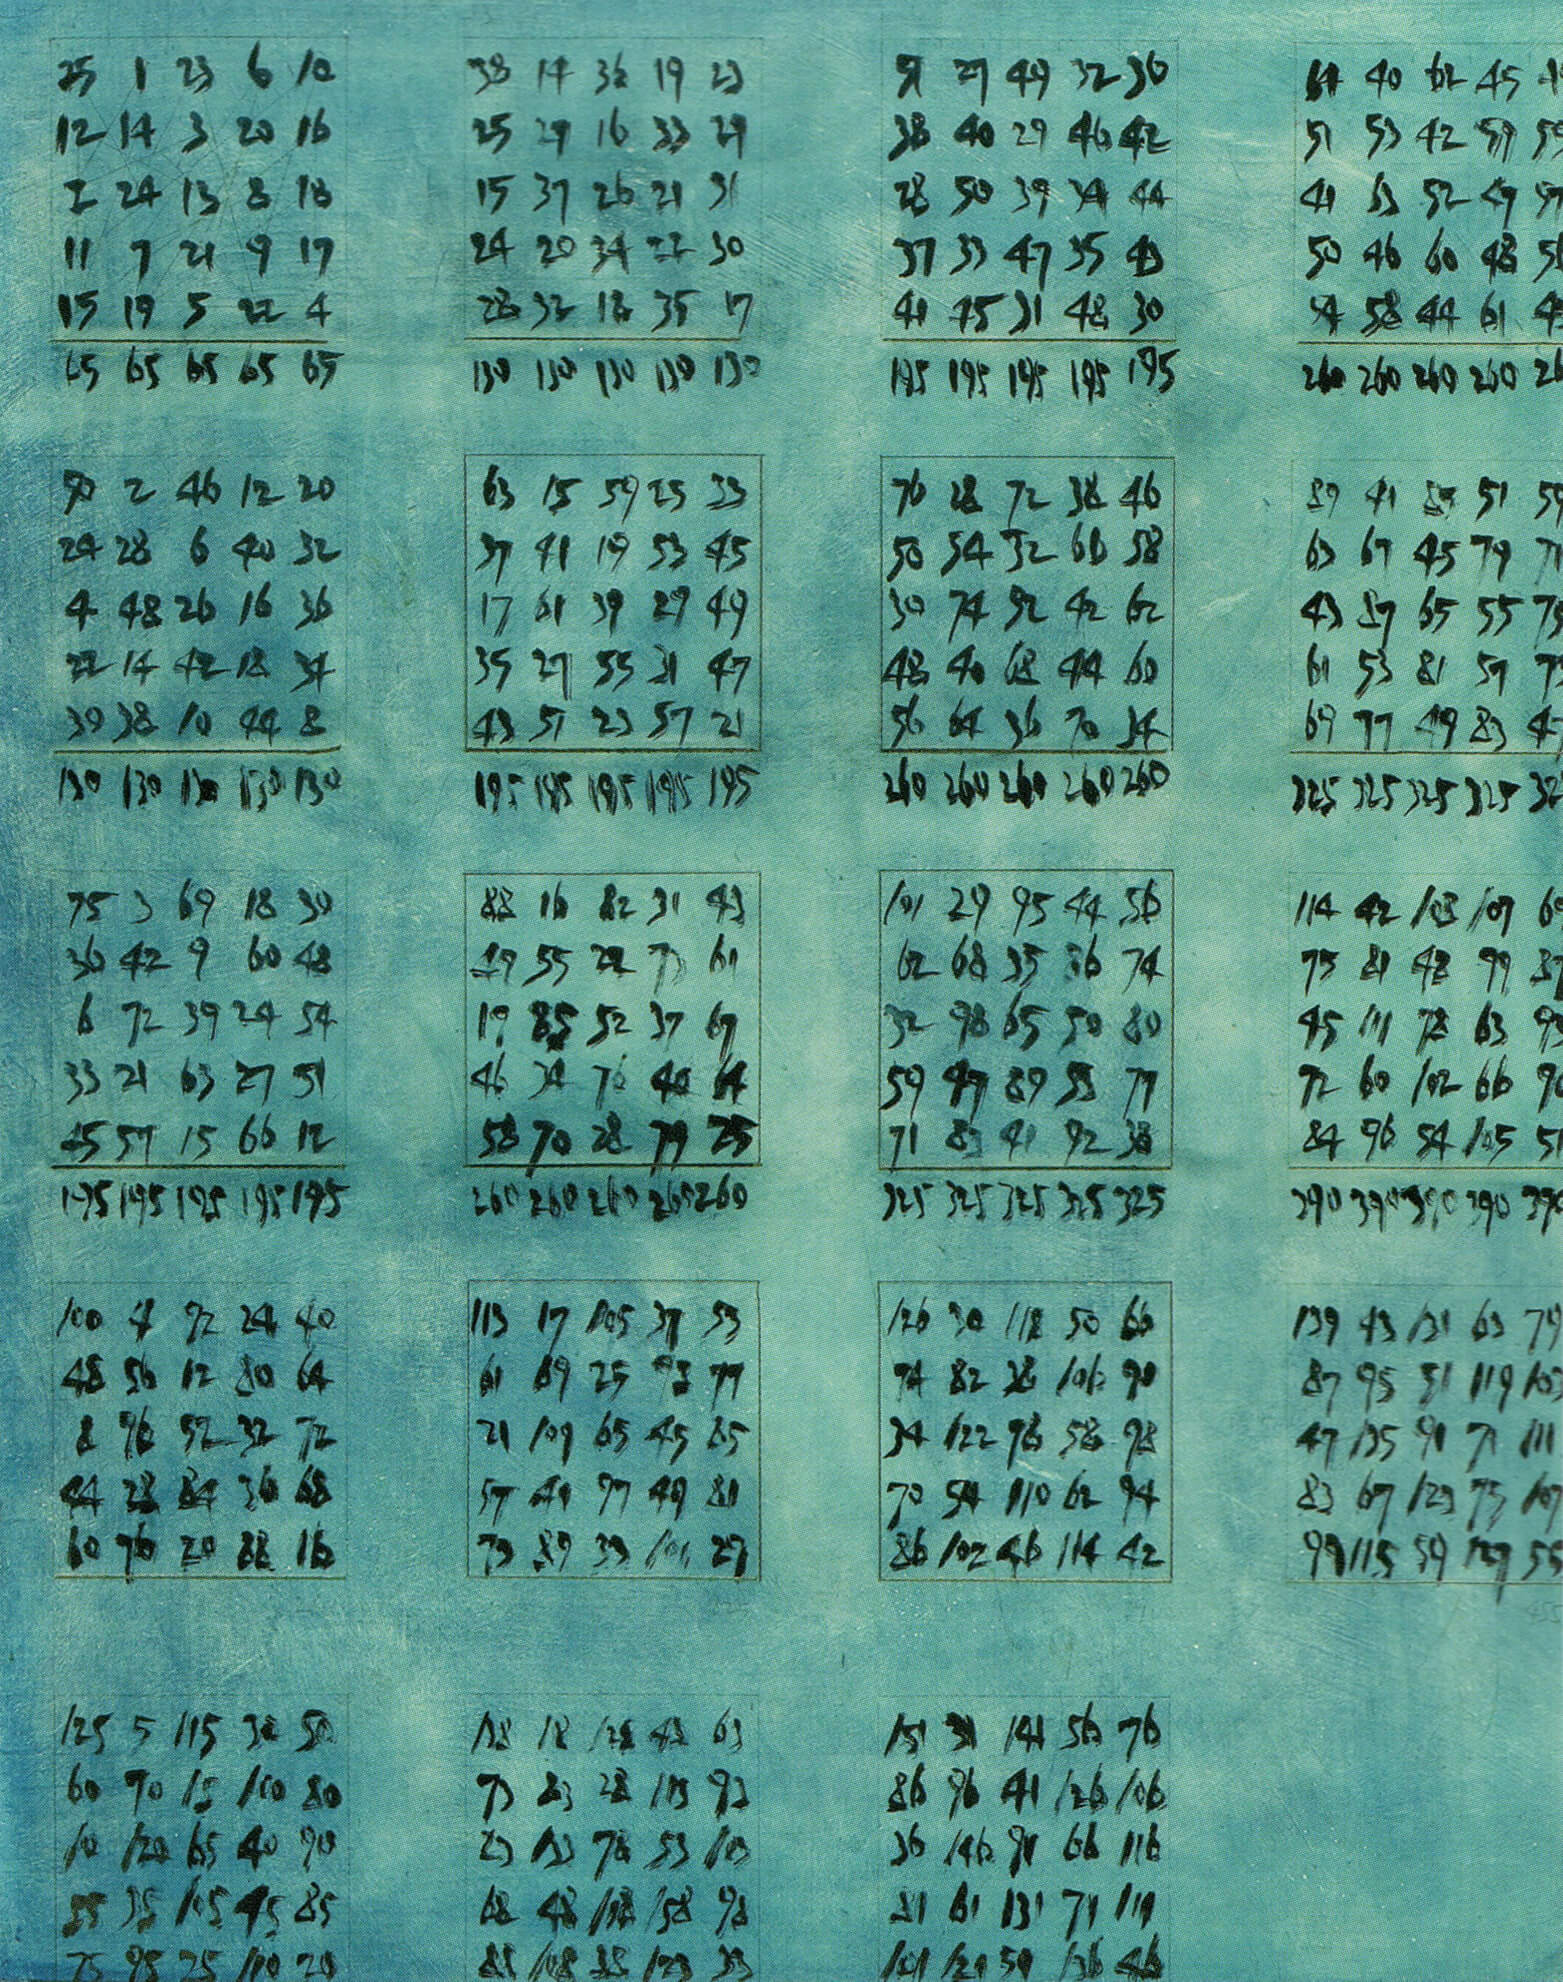 25 1 23 6 10
12 14 3 20 16
2 24 13 8 18
11 7 21 9 17
15 19 5 22 4
65 65 65 65 65
38 14 36 19 23
25 27 16 33 29
15 37 26 21 31
24 20 34 22 30
28 32 18 35 17
130 130 130 130 130
51 27 49 32 36
38 40 29 46 42
28 50 39 34 44
37 33 47 35 43
41 45 31 48 30
195 195 195 195 195
64 40 62 45
51 53 42 59
41 63 52 47
50 46 60 48
54 58 44 61
260 260 260 260
50 2 46 12 20
24 28 6 40 32
4 48 26 16 36
22 14 42 18 34
30 38 10 44 8
130 130 130 130 130
63 15 59 25 33
37 41 19 53 45
17 61 39 29 49
35 27 55 31 47
43 51 23 57 21
195 195 195 195 195
76 28 72 38 46
50 54 32 66 58
30 74 52 42 62
48 40 68 44 60
56 64 36 70 34
260 260 260 260 260
89 41 85 51
63 67 45 79
43 87 65 55
61 53 81 57
69 77 49 83
325 325 325 325
75 3 69 18 30
36 42 9 60 48
6 72 39 24 54
33 21 63 27 51
45 57 15 66 12
195 195 195 195 195
88 16 82 31 43
49 55 22 73 61
19 85 52 37 67
46 34 76 40 64
58 70 28 79 25
260 260 260 260 260
101 29 95 44 56
62 68 35 86 74
32 98 65 50 80
59 47 89 53 77
71 83 41 92 38
325 325 325 325 325
114 42 108 107
75 81 48 99
45 111 78 63
72 60 102 66
84 96 54 105
390 390 390 390
100 4 92 24 40
48 56 12 80 64
8 96 52 32 72
44 28 84 36 68
60 76 20 88 16
113 17 105 37 53
61 69 25 93 77
21 109 65 45 85
57 41 97 49 81
73 89 33 101 29
126 30 118 50 66
74 82 38 106 90
34 122 78 58 98
70 54 110 62 94
86 102 46 114 42
139 43 131 63 79
87 95 51 119 103
47 135 91 71 111
83 67 123 75 107
99 115 59 127 55
125 5 115 30 50
60 70 15 100 80
10 120 65 40 90
55 35 105 45 85
75 95 25 110 20
138 18 128 43 63
73 83 28 113 93
23 133 78 53 103
68 48 118 158 98
88 108 38 123 33
151 31 141 56 76
86 96 41 126 106
36 146 91 66 116
81 61 131 71 111
101 121 51 136 46